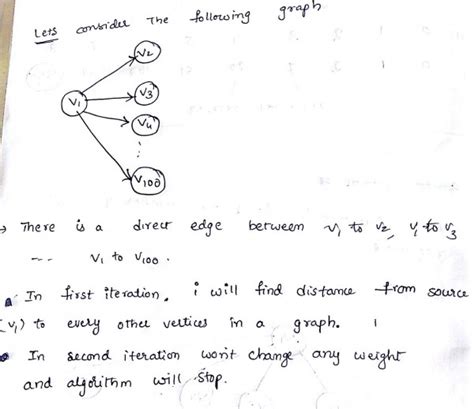 Lets consider The following graph
V2
V1
V3
V4
V100
→ There is a direct edge between V1 to V2, V1 to V3
-- V1 to V100.
In first iteration, i will find distance from source
(V1) to every other vertices in a graph.
In second iteration won't change any weight
and algoithm will stop.